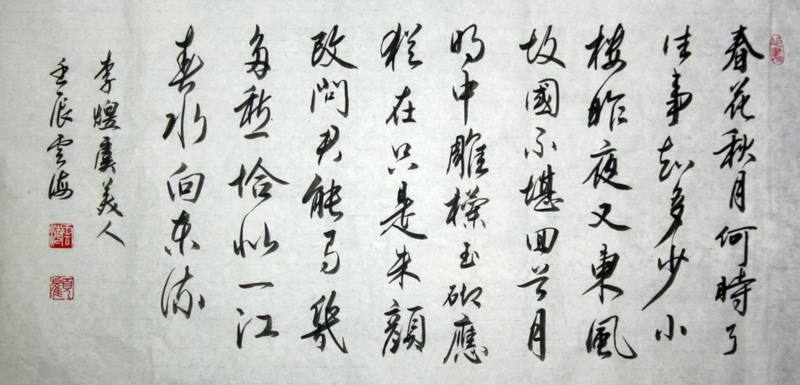 春花秋月何時了
往事知多少小
樓昨夜又東風
故國不堪回首月
明中雕欄玉砌應
猶在只是朱顏
改問君能有幾
多愁恰似一江
春水向東流
李煜虞美人
壬辰雲海